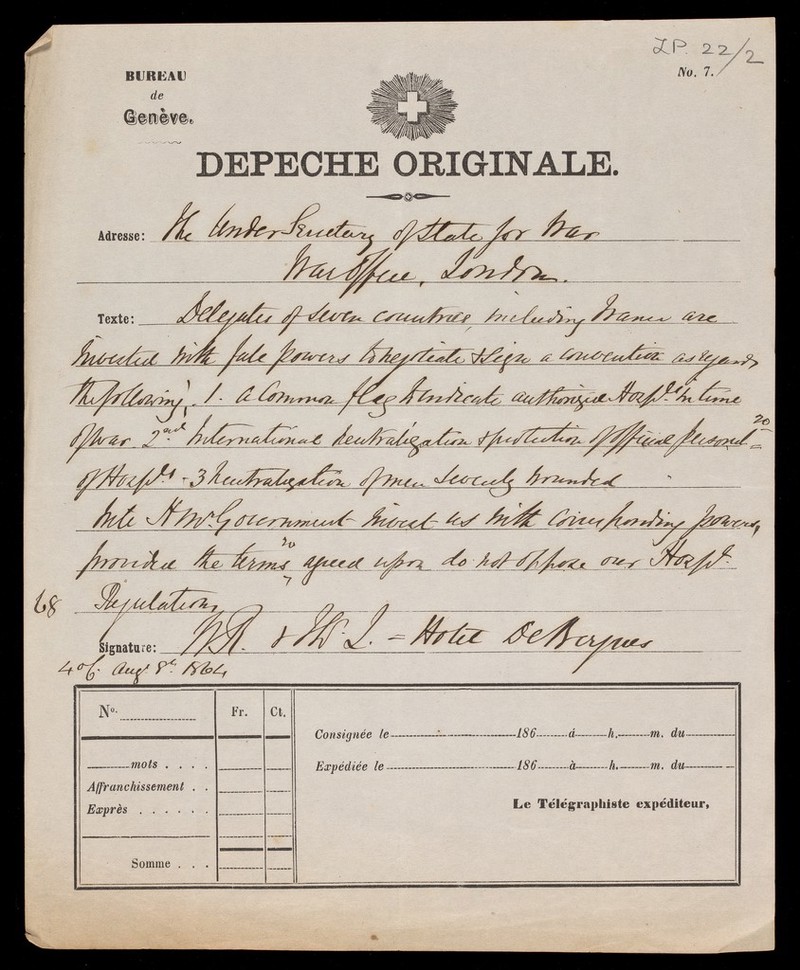 LP. 22/2
BUREAU
de
Genève.
No. 7.
DEPECHE ORIGINALE.
Adresse: The Under Secretary of State for War
War Office, London.
Texte: Delegates of seven countries, including France are
invested with full powers to negotiate & sign a convention as regards
the following, 1. a Common flag to indicate authorized Hospls. in time
of war 2nd. International neutralization & protection of official personel
20
of Hospls - 3 Neutralization of men severely wounded
H M Government invest us with corresponding powers,
provided the terms agreed upon do not oppose our Hospl.
68 Regulations
Signature: W.R. & = Hotel De Bergues
Augt 8th 1864
No.
Fr.
Ct.
mots . . . .
Affranchissement . .
Exprès . . . . . .
Somme . . .
Consignée le 186 à h. m. du
Expédiée le 186 à h. m. du
Le Télégraphiste expéditeur,